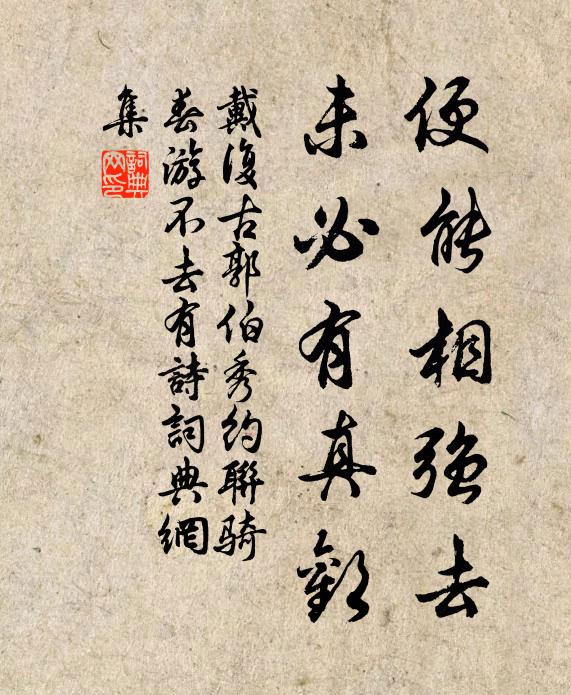 便能相強去
未必有真歡
戴復古郭伯秀約聯騎
春游不去有詩詞典網
集
詞典網印